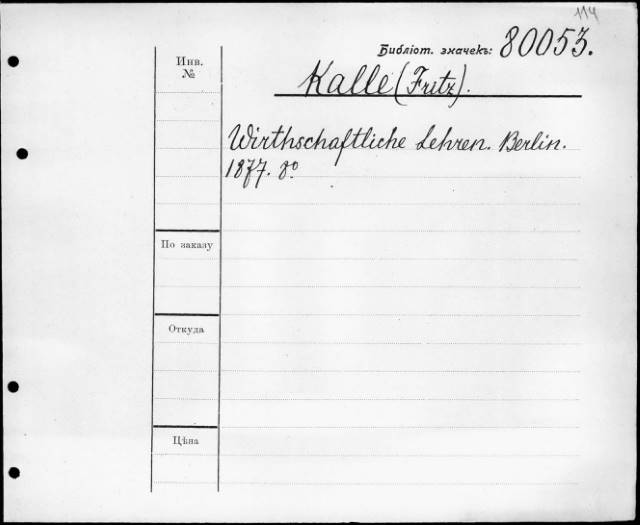 114
Библіот. значекъ: 80053.
Инв.
№
Kalle (Fritz).
Wirthschaftliche Lehren. Berlin.
1877. 8º
По заказу
Откуда
Цѣна